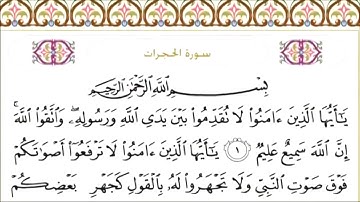 سورة الحجرات
بِسْمِ ٱللَّهِ ٱلرَّحْمَٰنِ ٱلرَّحِيمِ
يَٰٓأَيُّهَا ٱلَّذِينَ ءَامَنُوا۟ لَا تُقَدِّمُوا۟ بَيْنَ يَدَىِ ٱللَّهِ وَرَسُولِهِۦ ۖ وَٱتَّقُوا۟ ٱللَّهَ ۚ
إِنَّ ٱللَّهَ سَمِيعٌ عَلِيمٌ ١ يَٰٓأَيُّهَا ٱلَّذِينَ ءَامَنُوا۟ لَا تَرْفَعُوٓا۟ أَصْوَٰتَكُمْ
فَوْقَ صَوْتِ ٱلنَّبِىِّ وَلَا تَجْهَرُوا۟ لَهُۥ بِٱلْقَوْلِ كَجَهْرِ بَعْضِكُمْ